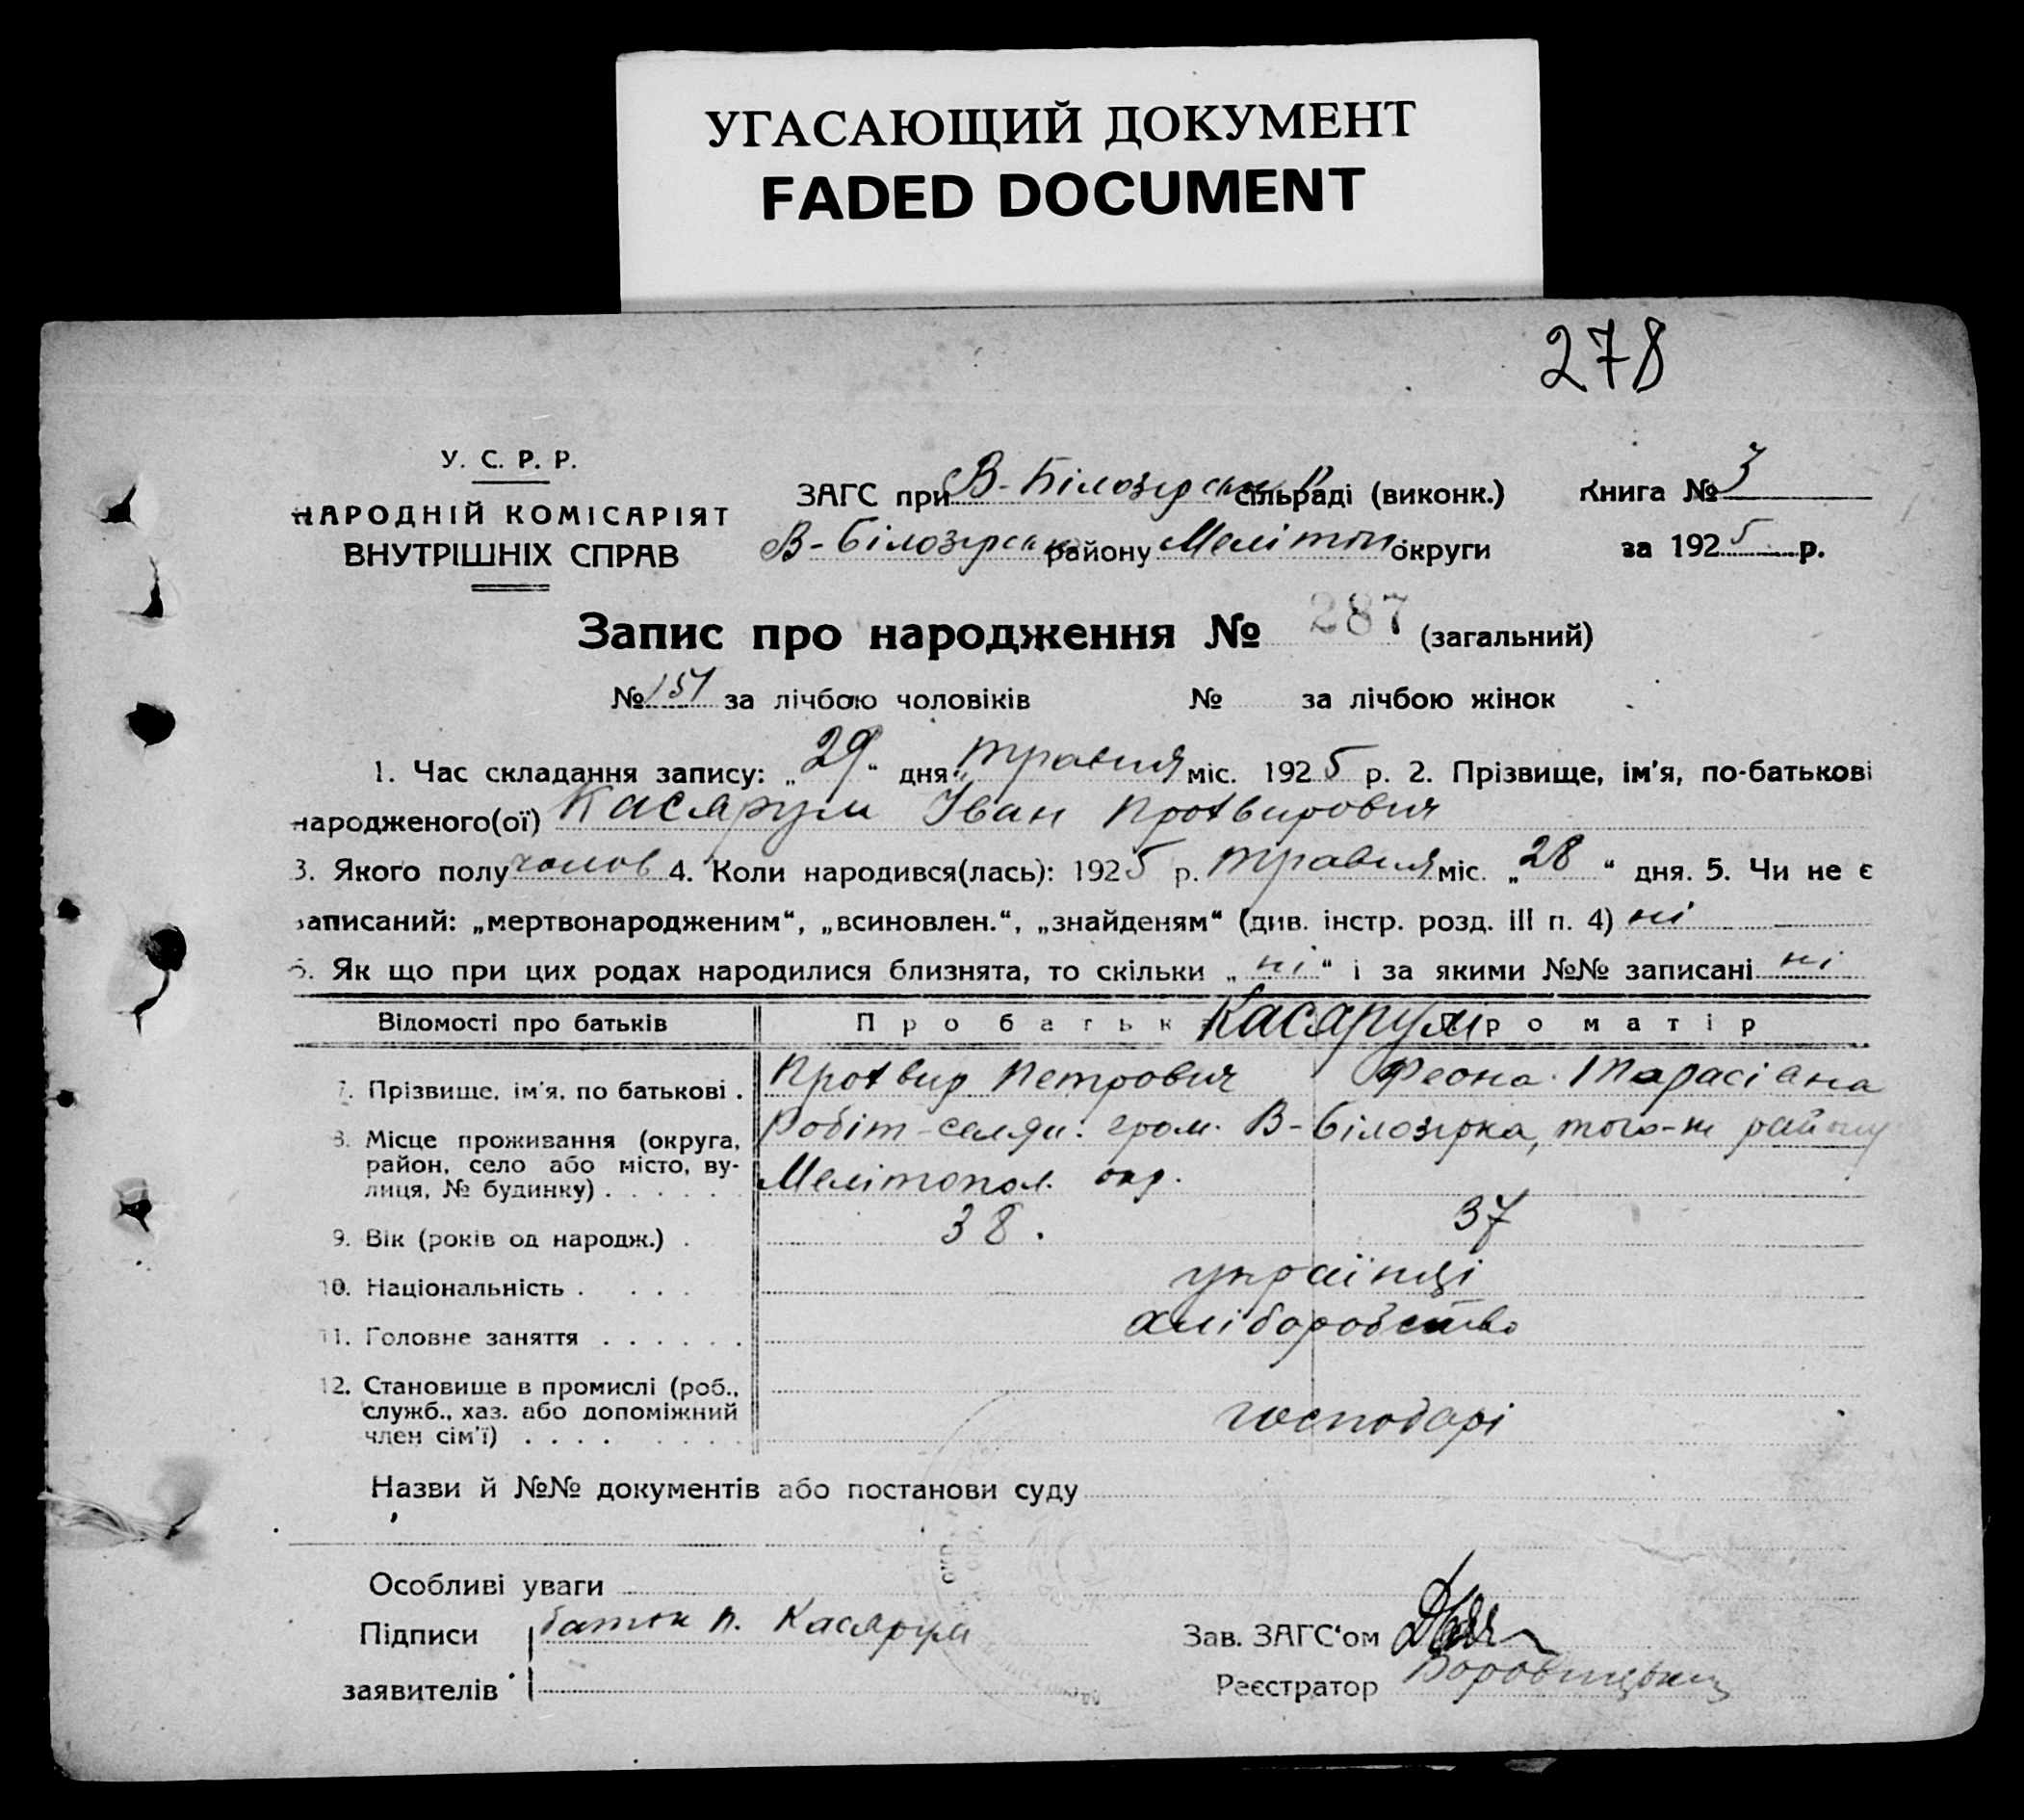 УГАСАЮЩИЙ ДОКУМЕНТ
FADED DOCUMENT
278
У. С. Р. Р.
НАРОДНІЙ КОМІСАРІЯТ
ВНУТРІШНІХ СПРАВ
ЗАГС при В-Білозірськ сільраді (виконк.) Книга № 3
В-Білозірськ району Мелітоп. округи за 1925 р.
Запис про народження № 287 (загальний)
№ 151 за лічбою чоловіків № за лічбою жінок
1. Час складання запису: „29“ дня „травня міс. 1925 р. 2. Прізвище, ім'я, по-батькові
народженого(ої) Касярум Іван
3. Якого полу чолов 4. Коли народився(лась): 1925 р. травня міс. „28“ дня. 5. Чи не є
записаний: „мертвонародженим“, „всиновлен.“, „знайденям“ (див. інстр. розд. III п. 4) ні
6. Як що при цих родах народилися близнята, то скільки „ні“ і за якими №№ записані ні
Відомості про батьків Про батьк Касярум Про матір
7. Прізвище, ім'я, по батькові . Петрович Феона Тарасівна
8. Місце проживання (округа, район, село або місто, вулиця, № будинку) . . . . . Робіт-селян. гром. В-Білозірка, того-ж району
Мелітопол. окр.
9. Вік (років од народж.) . 38. 37
10. Національність . . . . українці
11. Головне заняття . . . . . . хліборобство
12. Становище в промислі (роб.,
служб., хаз. або допоміжний
член сім'ї) . . . . . . . . господарі
Назви й №№ документів або постанови суду
Особливі уваги
Підписи батьк П. Касярум Зав. ЗАГС'ом
заявителів Реєстратор